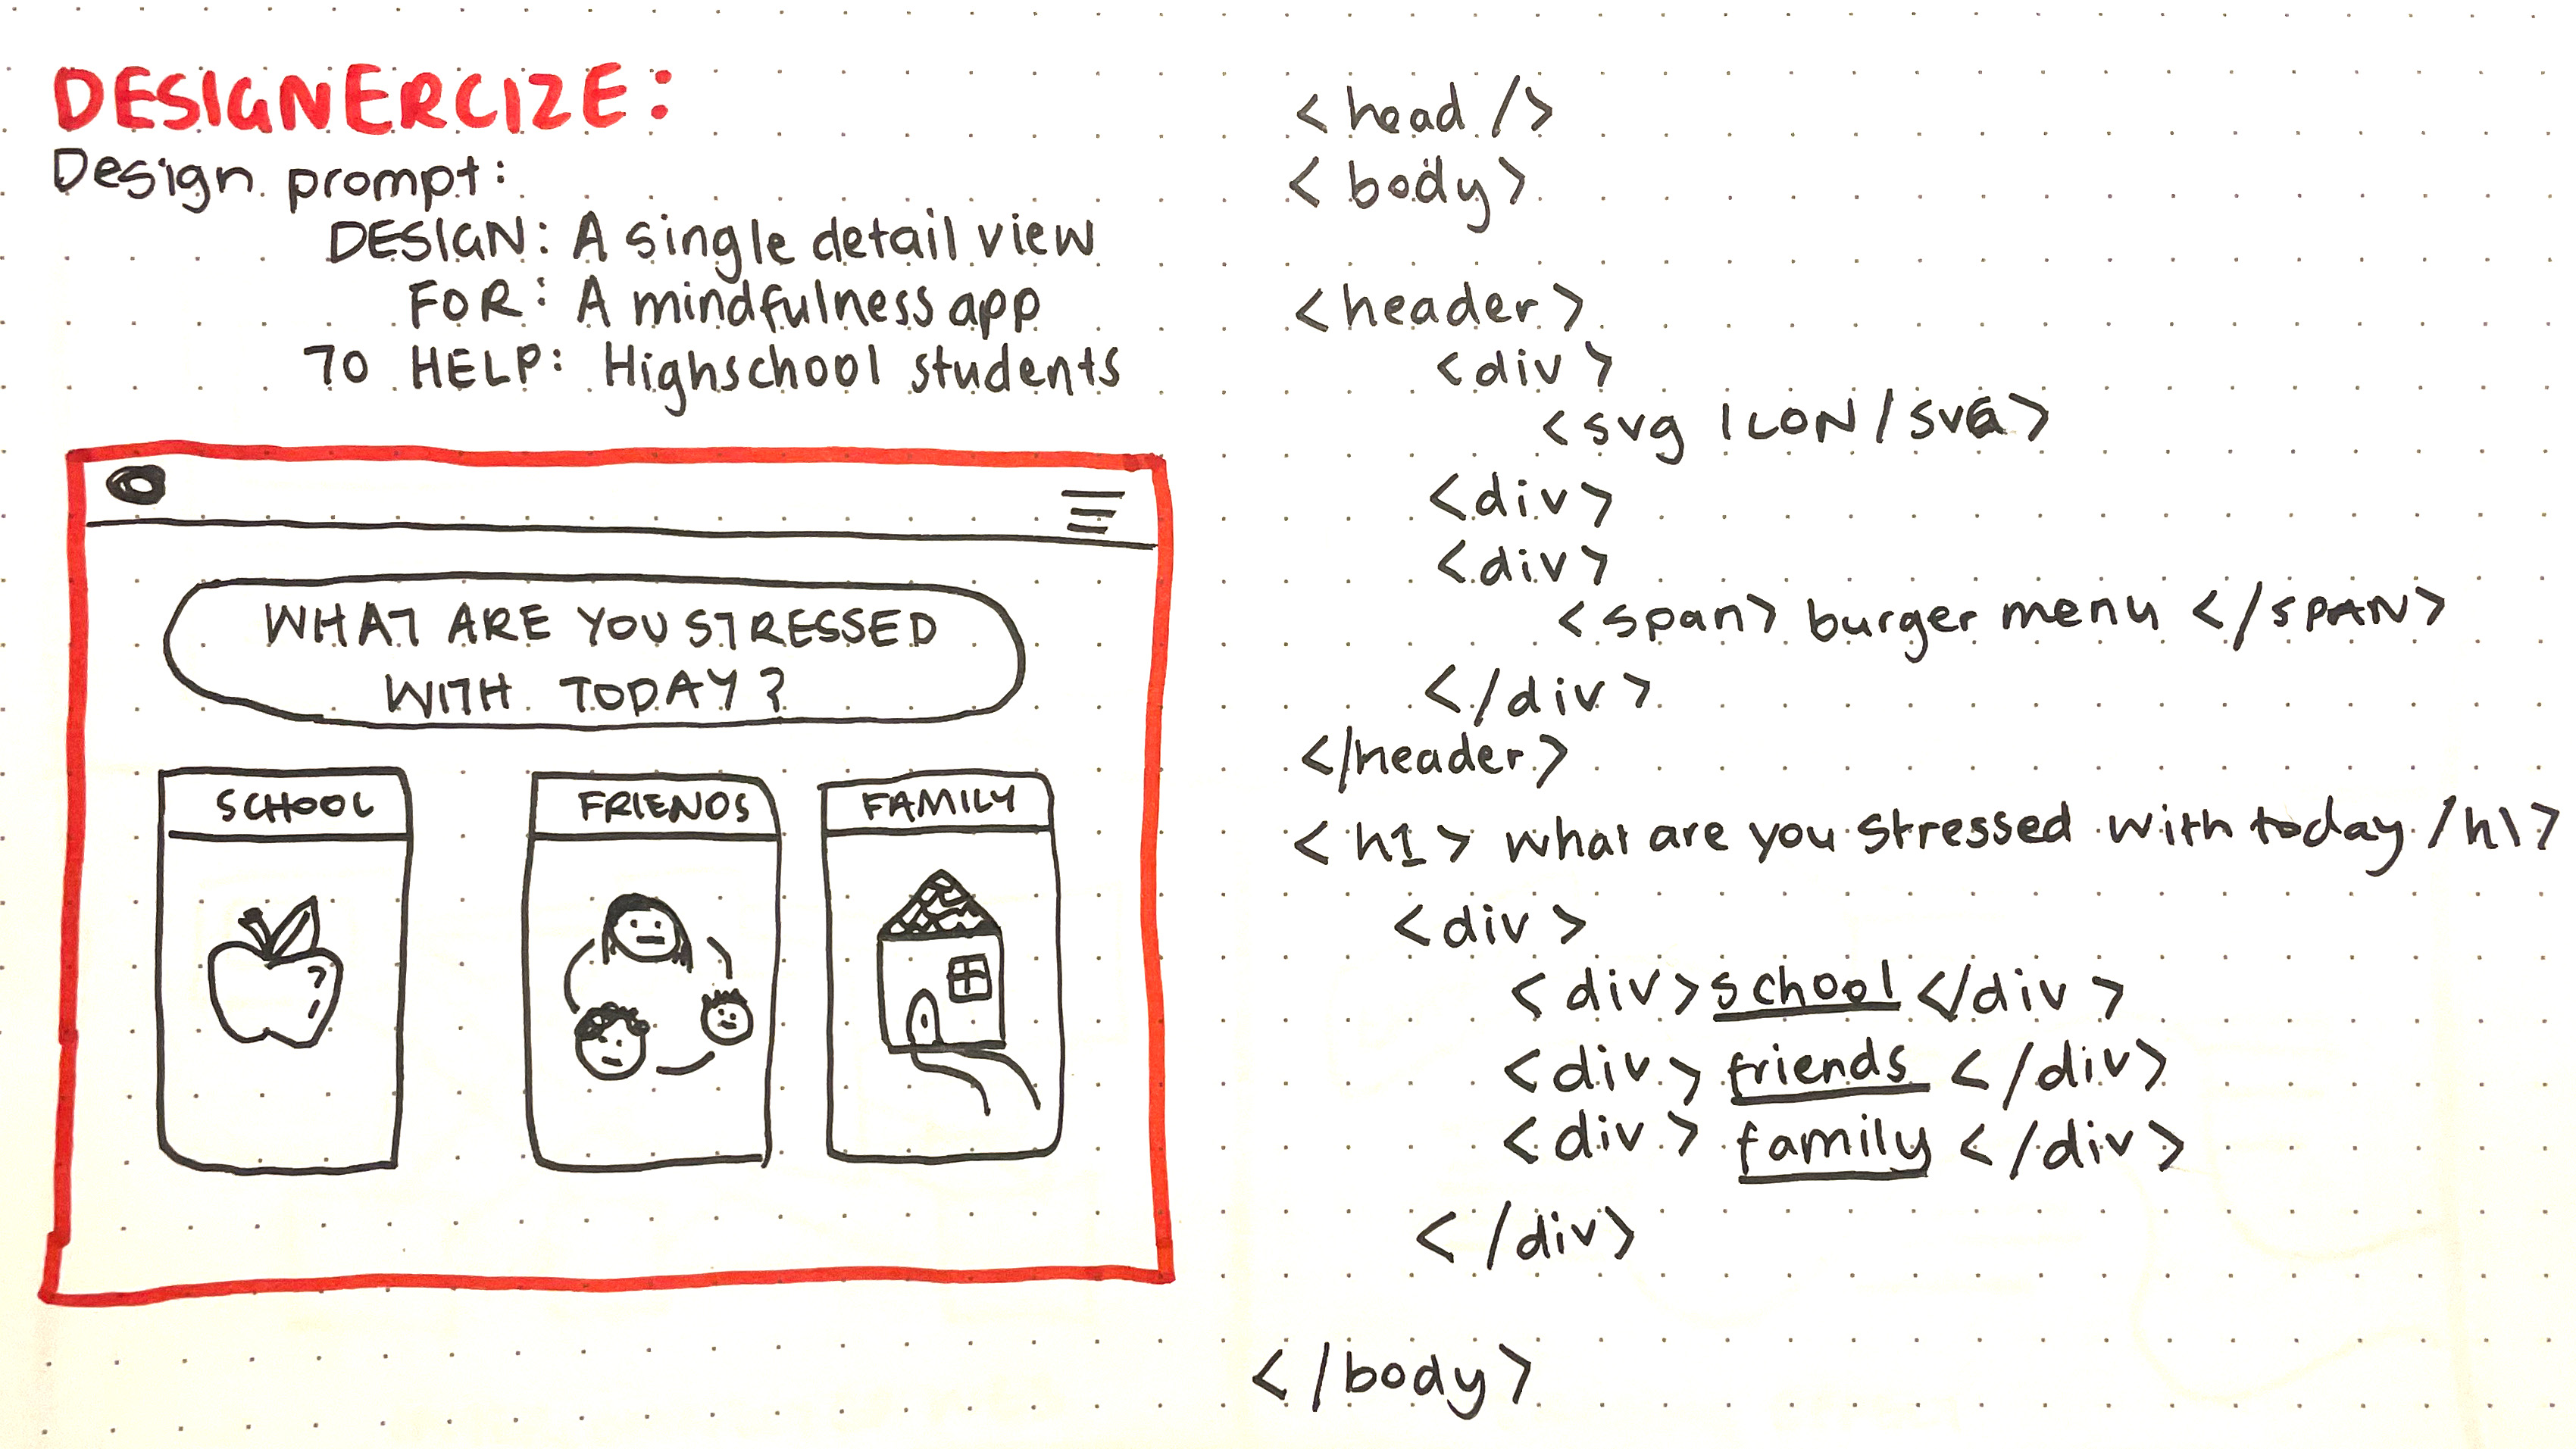 DESIGNERCIZE:
Design prompt:
DESIGN: A single detail view
FOR: A mindfulness app
TO HELP: Highschool students
WHAT ARE YOU STRESSED
WITH TODAY?
SCHOOL
FRIENDS
FAMILY
<head />
<body>
<header>
<div>
<svg ICON/SVG>
<div>
<div>
<span> burger menu </SPAN>
</div>
</header>
<h1> what are you stressed with today /h1>
<div>
<div> school </div>
<div> friends </div>
<div> family </div>
</div>
</body>